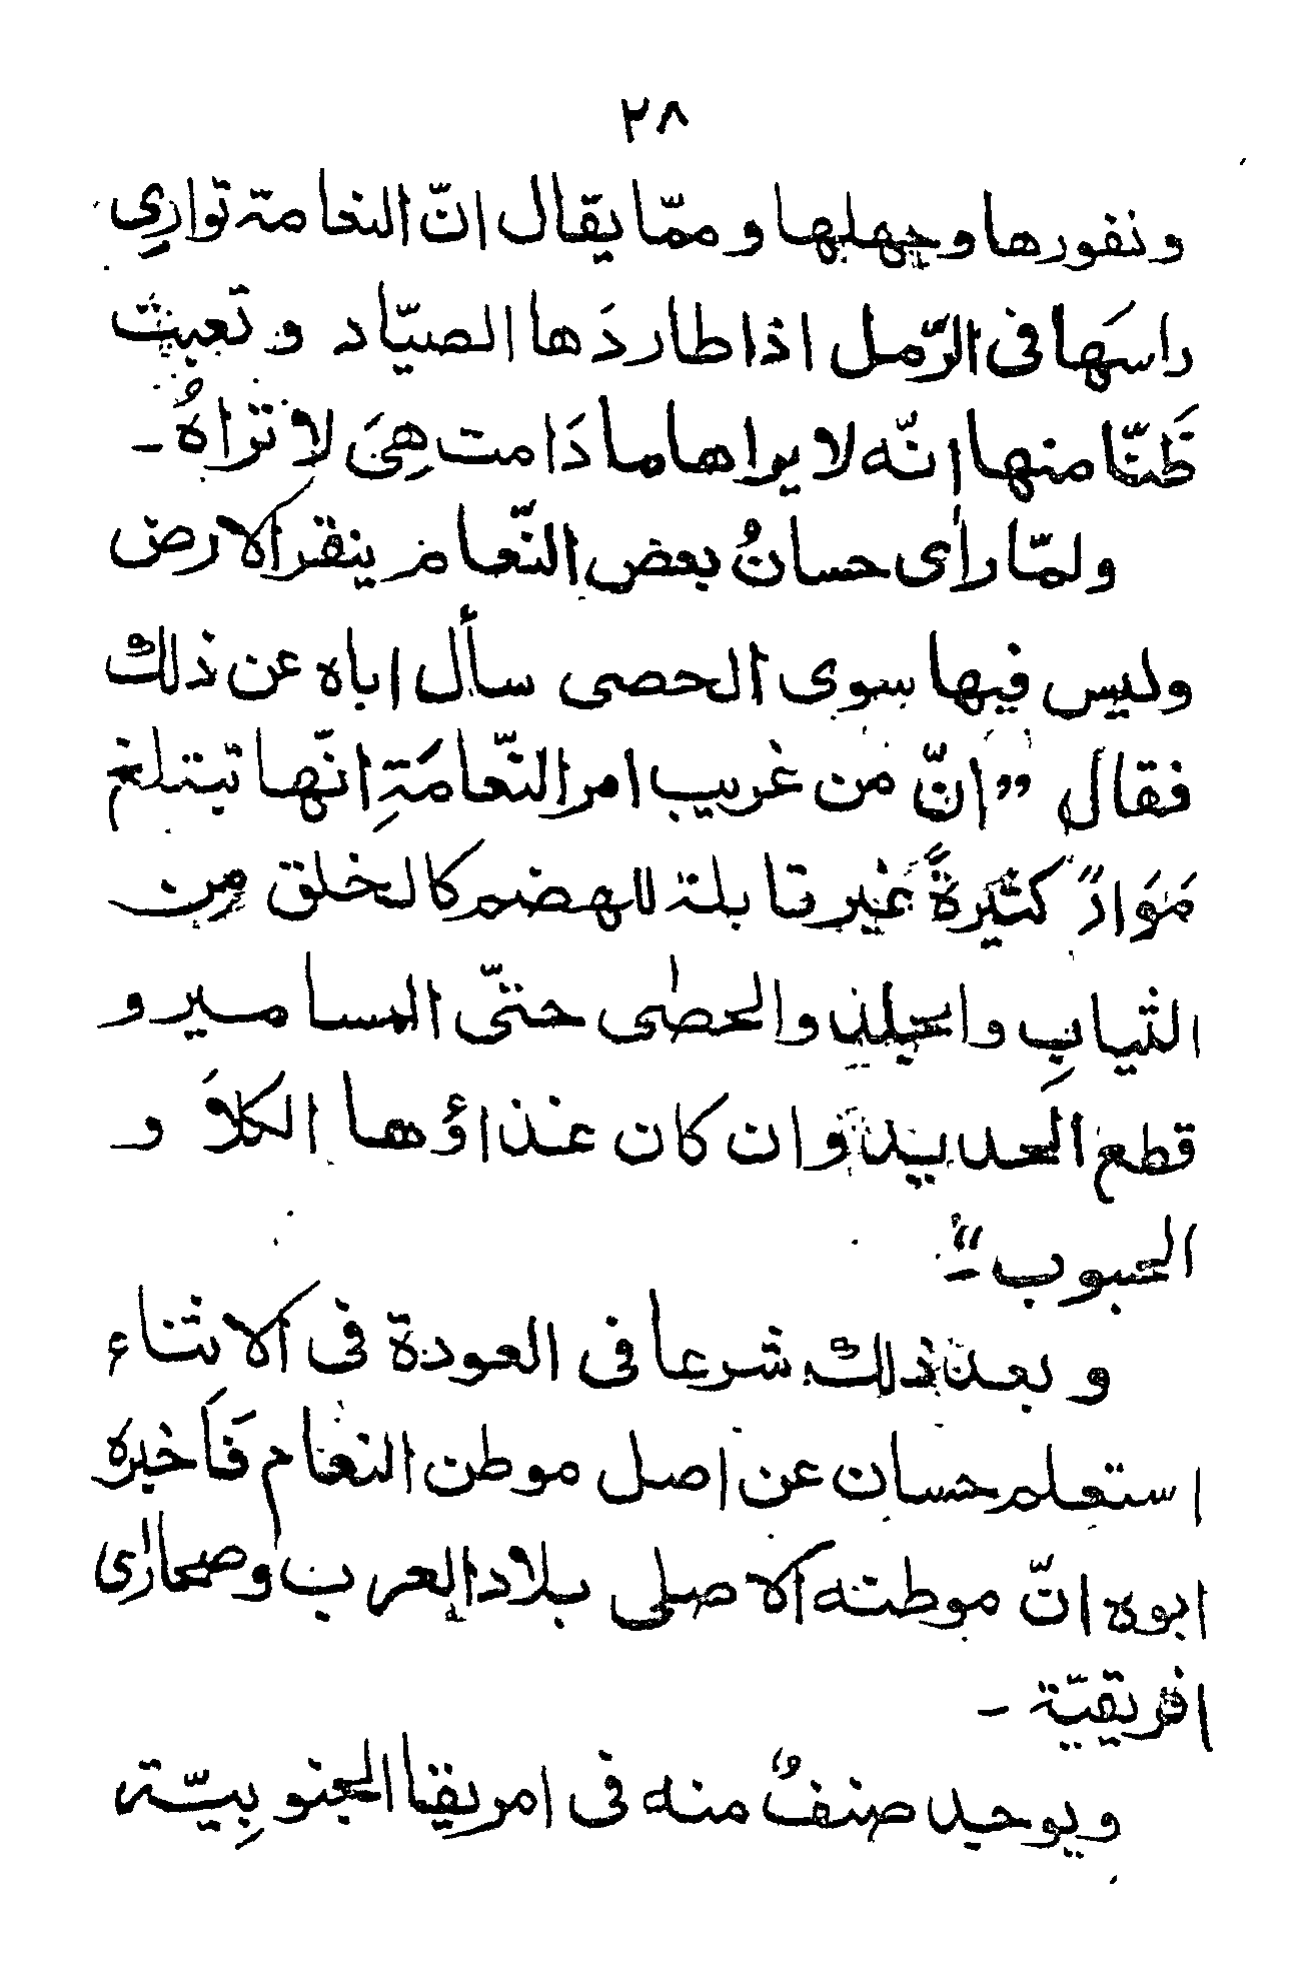 ٢٨
ونفورها وجهلها ومما يقال انّ النعامة تواري
راسَها فى الرّمل اذا طاردَها الصيّاد و تعبث
ظَنّا منها انّه لا يراها ما دَامت هِىَ لا تراهُ -
ولمّا رأى حسانُ بعض النّعام ينقر الارض
وليس فيها سوى الحصى سأل اباه عن ذلك
فقال " انّ من غريب امر النّعامَةِ انّها تبتلع
مَوَادً كثيرةً غير قابلة للهضم كالخلق من
الثيابِ والجلد والحصٰى حتّى المسامير و
قطع الحديد وان كان غذاؤها الكلاَ و
الحبوب "-
و بعد ذلك شرعا فى العودة فى الاثناء
استعلم حسان عن اصل موطن النعام فَاَخبره
ابوه انّ موطنه الاصلى بلاد العرب وصحارٰى
افريقيّة -
ويوجد صنفٌ منه فى امريقا الجنوبِيّة